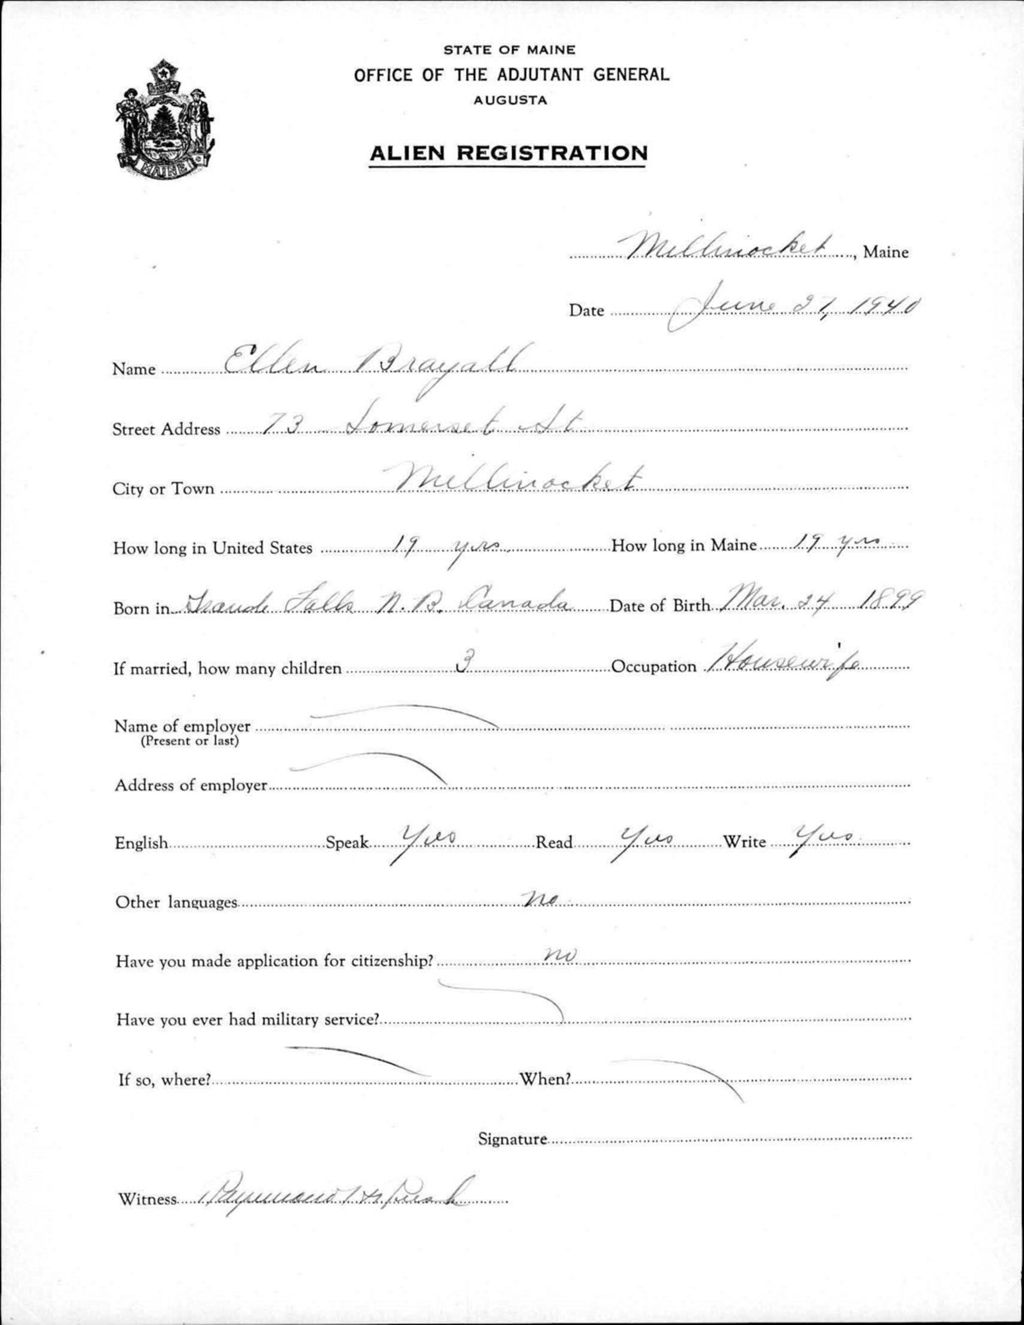 STATE OF MAINE
OFFICE OF THE ADJUTANT GENERAL
AUGUSTA
ALIEN REGISTRATION
MAINE
Millinocket, Maine
Date June 27, 1940
Name Ellen Brayall
Street Address 73 Somerset St
City or Town Millinocket
How long in United States 19 yrs How long in Maine 19 yrs
Born in Grande Falls N.B. Canada Date of Birth Mar. 24 1899
If married, how many children 3 Occupation Housewife
Name of employer
(Present or last)
Address of employer
English Speak Yes Read Yes Write Yes
Other languages no
Have you made application for citizenship? no
Have you ever had military service?
If so, where? When?
Signature
Witness Raymond H.